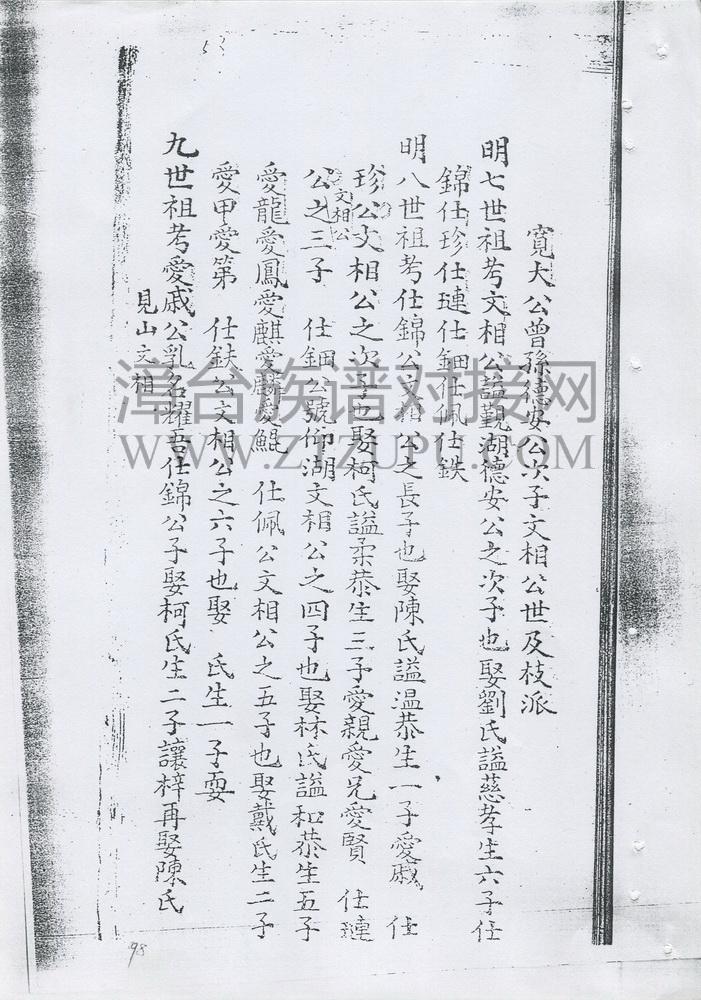 寬夫公曾孫德安公次子文相公世及枝派
明七世祖考文相公諡觀湖德安公之次子也娶劉氏諡慈孝生六子仕
錦仕珍仕璉仕鈿仕佩仕鉄
明八世祖考仕錦公文相公之長子也娶陳氏諡温恭生一子愛戚 仕
珍公文相公之次子也娶柯氏諡柔恭生三子愛親愛兄愛賢 仕璉
公文相公之三子 仕鈿公號仰湖文相公之四子也娶林氏諡和恭生五子
愛龍愛鳳愛麒愛麟愛鯤 仕佩公文相公之五子也娶戴氏生二子
愛甲愛第 仕鈇公文相公之六子也娶 氏生一子要
九世祖考愛戚公乳名耀吾仕錦公子娶柯氏生二子讓梓再娶陳氏
見山文相
漳台族谱对接网
WWW.ZTZUPU.COM
98